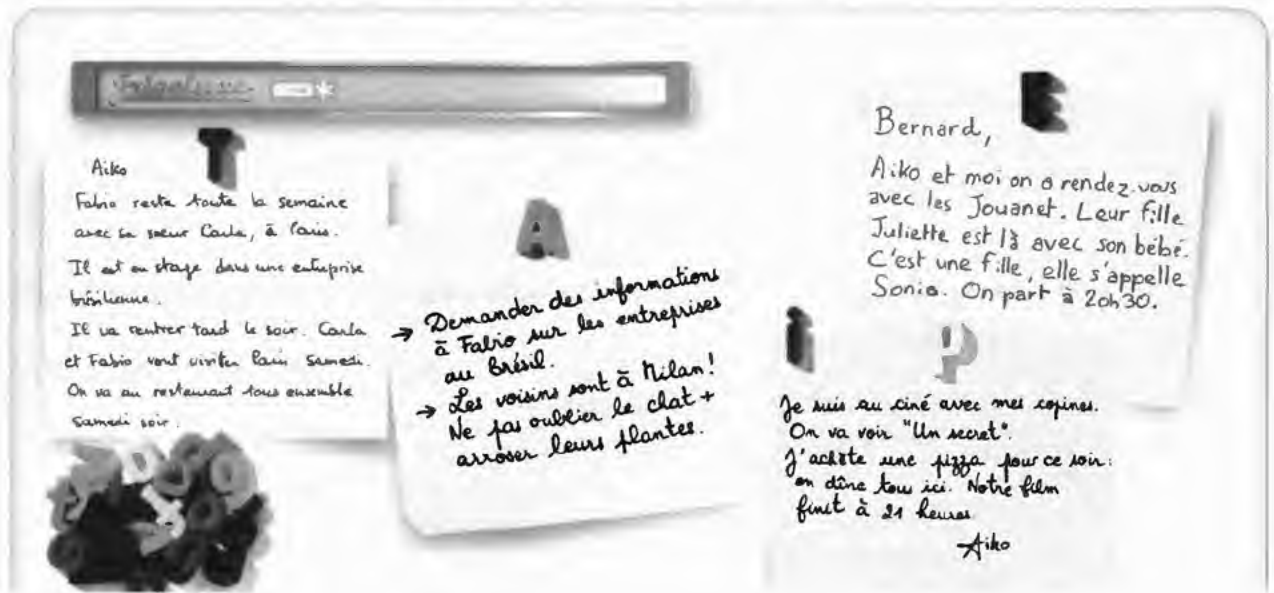 T
Aiko
Fabio reste toute la semaine
avec sa sœur Carla, à Paris.
Il est en stage dans une entreprise
brésilienne.
Il va rentrer tard le soir. Carla
et Fabio vont visiter Paris samedi.
On va au restaurant tous ensemble
samedi soir.
A
→ Demander des informations
à Fabio sur les entreprises
au Brésil.
→ Les voisins sont à Milan!
Ne pas oublier le chat +
arroser leurs plantes.
E
Bernard,
Aiko et moi on a rendez-vous
avec les Jouanet. Leur fille
Juliette est là avec son bébé.
C'est une fille, elle s'appelle
Sonia. On part à 20h30.
i
Je suis au ciné avec mes copines.
On va voir "Un secret".
J'achète une pizza pour ce soir:
on dîne tous ici. Notre film
finit à 21 heures
Aiko